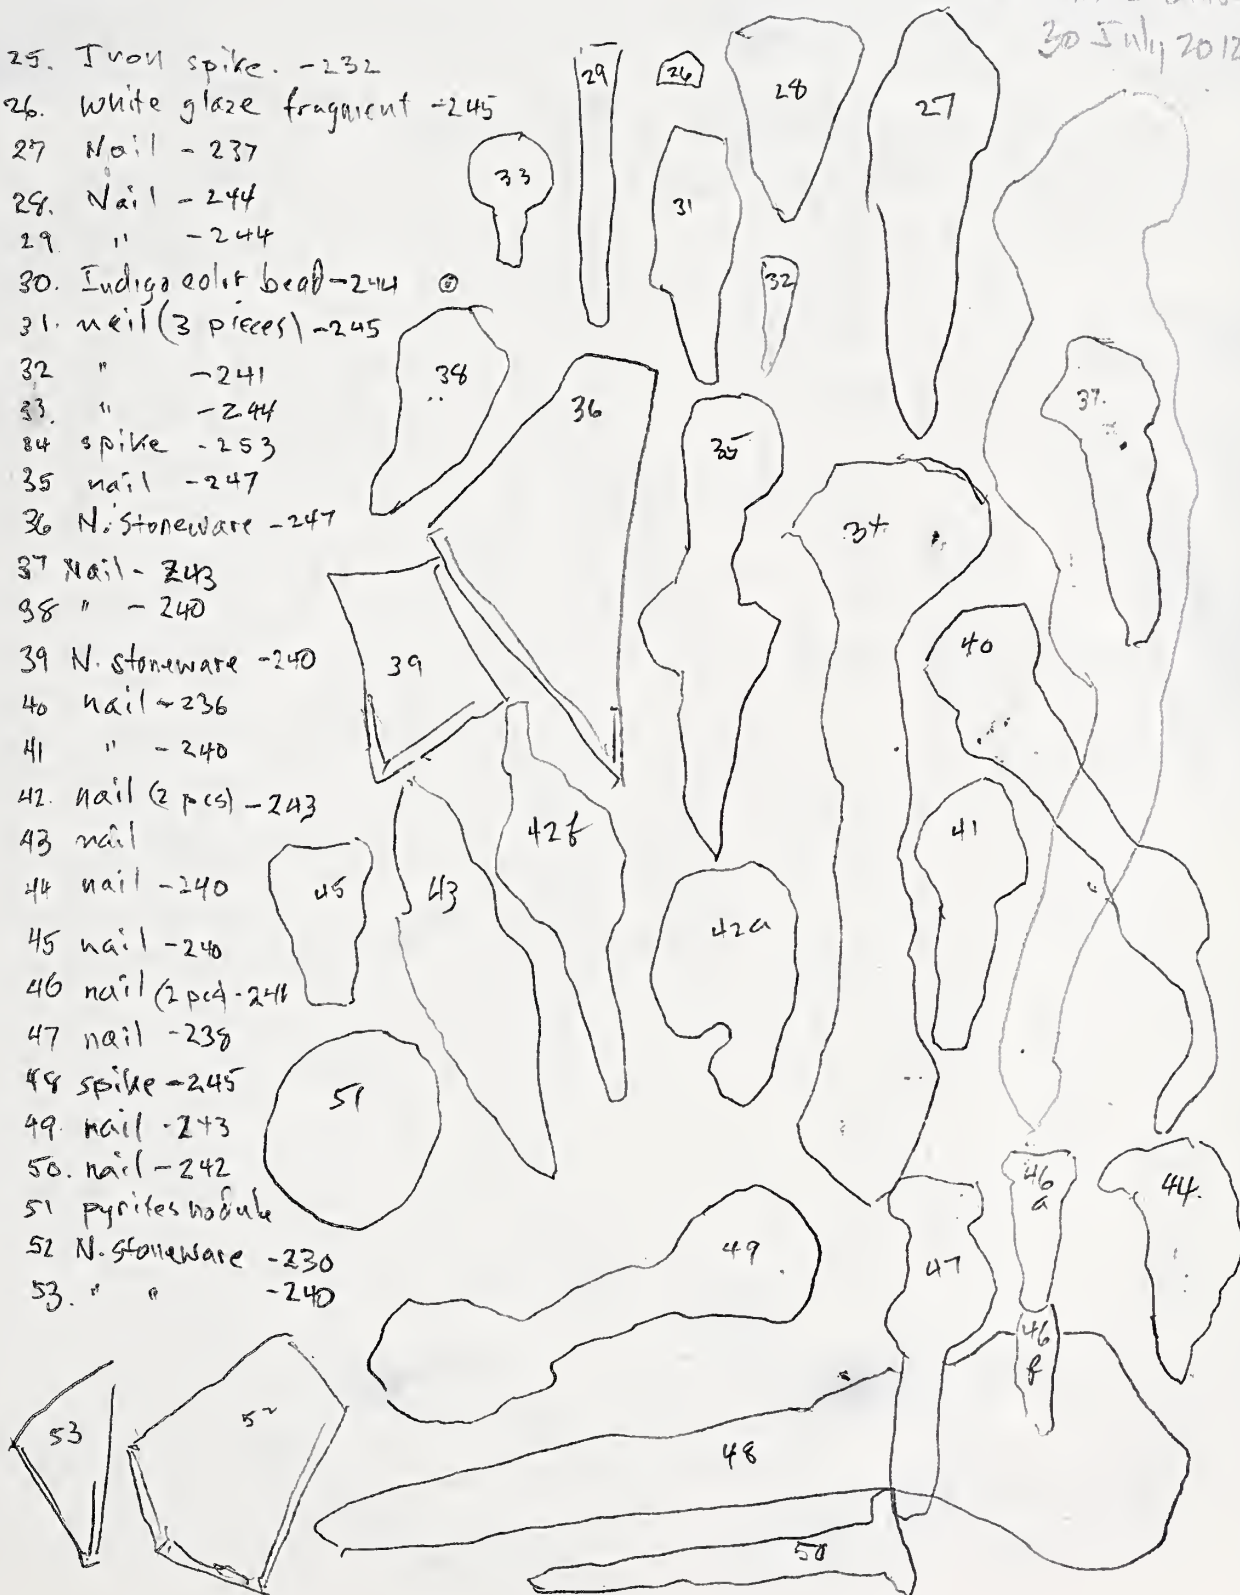 30 July 2012
25. Iron spike. -232
26. White glaze fragment -245
27 Nail - 237
28. Nail - 244
29 " - 244
30. Indigo color bead - 244
31. nail (3 pieces) - 245
32 " - 241
33. " - 244
34 spike - 253
35 nail - 247
36 N. Stoneware - 247
37 Nail - 243
38 " - 240
39 N. stoneware - 240
40 nail - 236
41 " - 240
42. nail (2 pcs) - 243
43 nail
44 nail - 240
45 nail - 240
46 nail (2 pcs) - 241
47 nail - 238
48 spike - 245
49. nail - 243
50. nail - 242
51 pyrites nodule
52 N. stoneware - 230
53. " " - 240
29
26
28
27
33
31
32
38
36
35
37.
34
39
40
42f
41
45
43
42a
51
46
a
44.
49
47
46
f
53
52
48
50